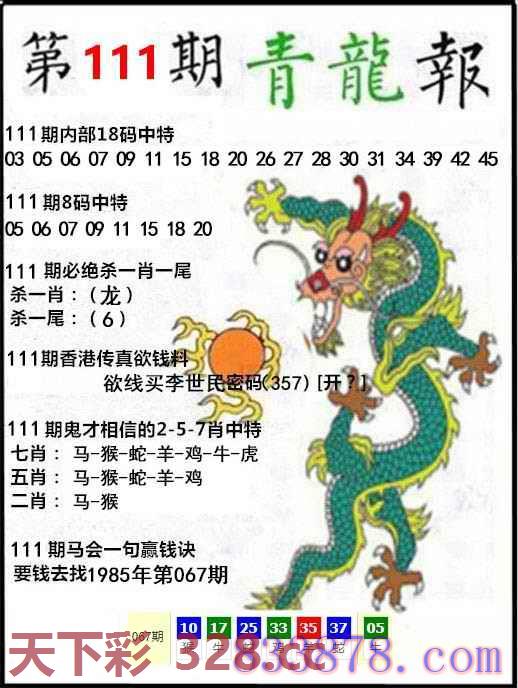 第111期青龍報
111期内部18码中特
03 05 06 07 09 11 15 18 20 26 27 28 30 31 34 39 42 45
111期8码中特
05 06 07 09 11 15 18 20
111期必绝杀一肖一尾
杀一肖：(龙)
杀一尾：(6)
111期香港传真欲钱料
欲线买李世民密码(357) [开？]
111期鬼才相信的2-5-7肖中特
七肖：马-猴-蛇-羊-鸡-牛-虎
五肖：马-猴-蛇-羊-鸡
二肖：马-猴
111期马会一句赢钱诀
要钱去找1985年第067期
067期 10 17 25 33 35 37 05
猴 牛 蛇 鸡 羊 蛇 牛
天下彩 328.cc